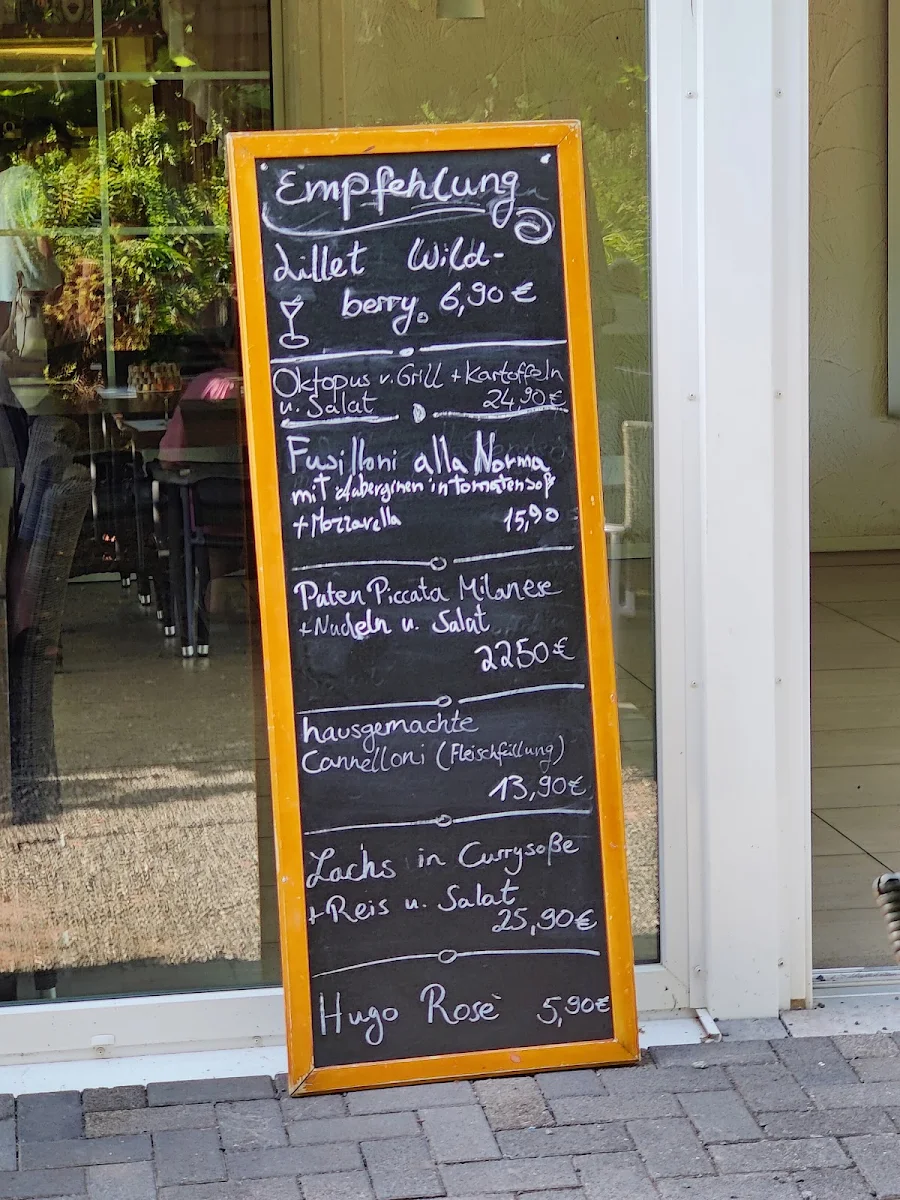 Empfehlung
Lillet Wild-
berry. 6,90 €
Oktopus v. Grill + Kartoffeln
u. Salat 24,90 €
Fusilloni alla Norma
mit Auberginen in Tomatensoß
+ Mozzarella 15,90
Puten Piccata Milanese
+ Nudeln u. Salat
2250 €
hausgemachte
Cannelloni (Fleischfüllung)
13,90 €
Lachs in Currysoße
+ Reis u. Salat
25,90 €
Hugo Rosè 5,90 €